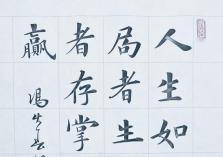 人生如
局者生
者存掌
赢
冯生